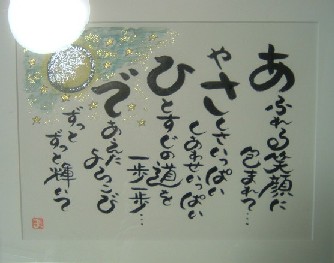 あふれる笑顔に
包まれて…
やさしさいっぱい
しあわせいっぱい
ひとすじの道を
一歩一歩…
であえた
よろこび
ずっと
ずっと輝いて